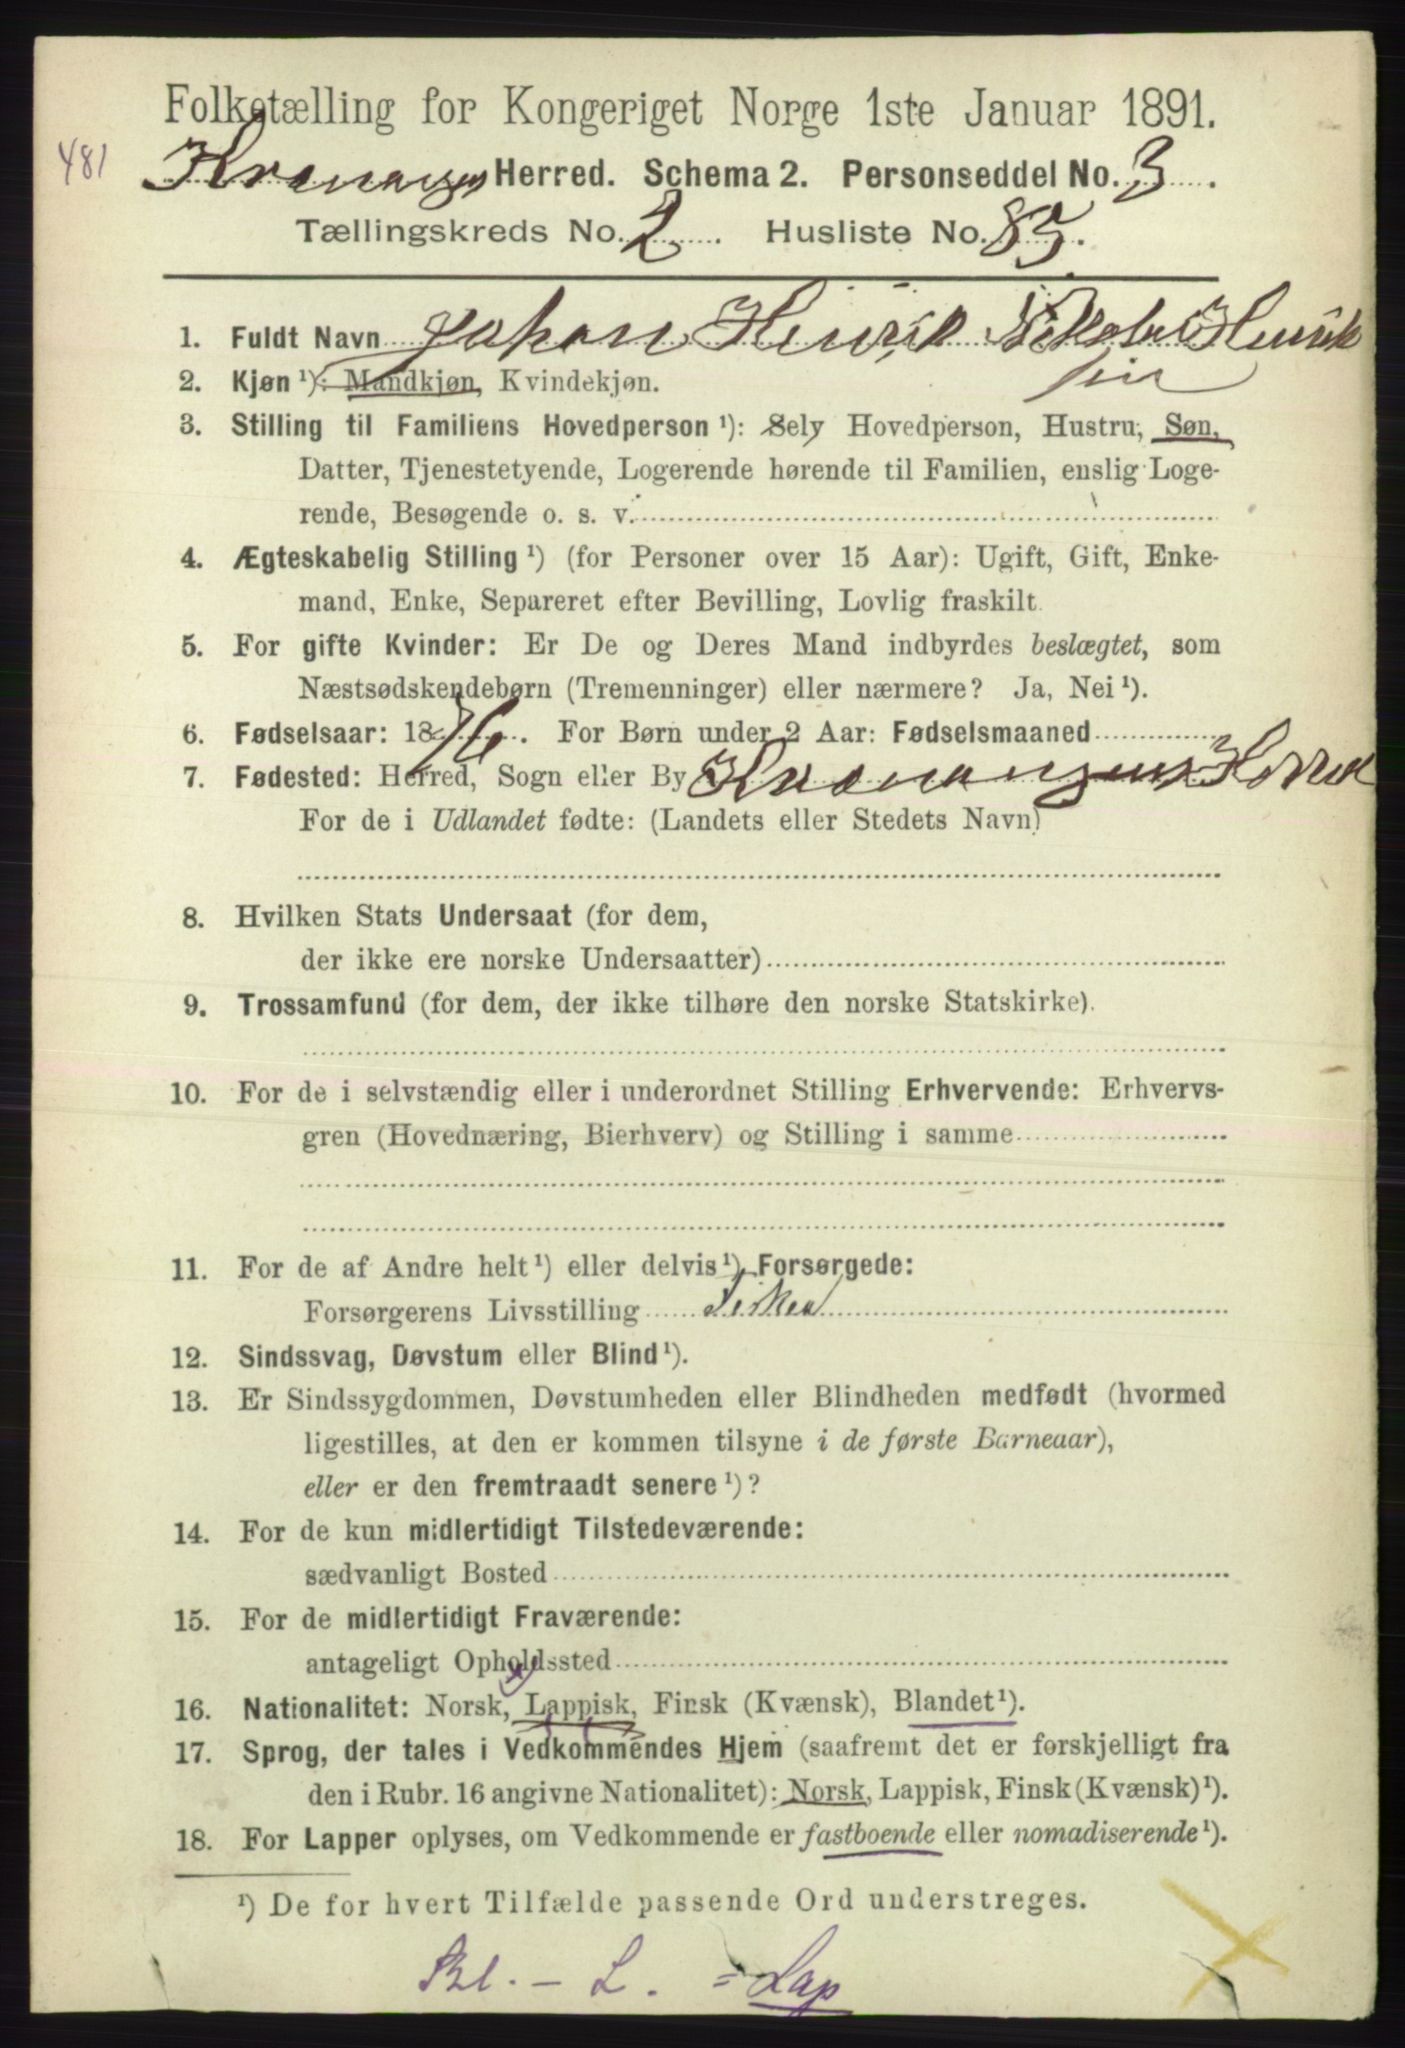 Folketælling for Kongeriget Norge 1ste Januar 1891.
481
Herred. Schema 2. Personseddel No. 3.
Tællingskreds No. 2. Husliste No. 85.
1. Fuldt Navn Johan Henrik Henrik
sen
2. Kjøn ¹): Mandkjøn, Kvindekjøn.
3. Stilling til Familiens Hovedperson ¹): Selv Hovedperson, Hustru, Søn,
Datter, Tjenestetyende, Logerende hørende til Familien, enslig Loge-
rende, Besøgende o. s. v.
4. Ægteskabelig Stilling ¹) (for Personer over 15 Aar): Ugift, Gift, Enke-
mand, Enke, Separeret efter Bevilling, Lovlig fraskilt
5. For gifte Kvinder: Er De og Deres Mand indbyrdes beslægtet, som
Næstsødskendebørn (Tremenninger) eller nærmere? Ja, Nei ¹).
6. Fødselsaar: 1876. For Børn under 2 Aar: Fødselsmaaned
7. Fødested: Herred, Sogn eller By Herred
For de i Udlandet fødte: (Landets eller Stedets Navn)
8. Hvilken Stats Undersaat (for dem,
der ikke ere norske Undersaatter)
9. Trossamfund (for dem, der ikke tilhøre den norske Statskirke).
10. For de i selvstændig eller i underordnet Stilling Erhvervende: Erhvervs-
gren (Hovednæring, Bierhverv) og Stilling i samme
11. For de af Andre helt ¹) eller delvis ¹) Forsørgede:
Forsørgerens Livsstilling Fisker
12. Sindssvag, Døvstum eller Blind ¹).
13. Er Sindssygdommen, Døvstumheden eller Blindheden medfødt (hvormed
ligestilles, at den er kommen tilsyne i de første Barneaar),
eller er den fremtraadt senere ¹)?
14. For de kun midlertidigt Tilstedeværende:
sædvanligt Bosted
15. For de midlertidigt Fraværende:
antageligt Opholdssted
16. Nationalitet: Norsk, Lappisk, Finsk (Kvænsk), Blandet ¹).
17. Sprog, der tales i Vedkommendes Hjem (saafremt det er forskjelligt fra
den i Rubr. 16 angivne Nationalitet): Norsk, Lappisk, Finsk (Kvænsk) ¹).
18. For Lapper oplyses, om Vedkommende er fastboende eller nomadiserende ¹).
¹) De for hvert Tilfælde passende Ord understreges.
Bl. – L. = Lap